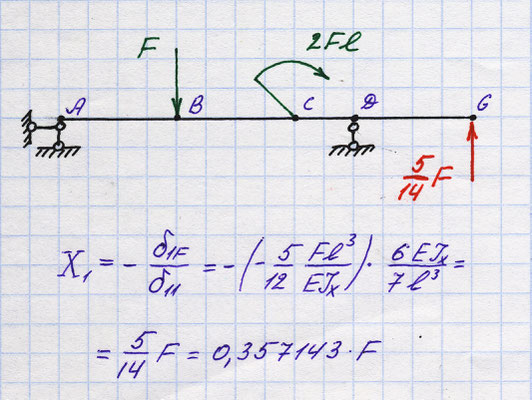 F 2Fl
A B C D G
5/14 F
X₁ = - δ₁F/δ₁₁ = -(- 5/12 Fl³/EJₓ) · 6EJₓ/7l³ =
= 5/14 F = 0,357143 · F